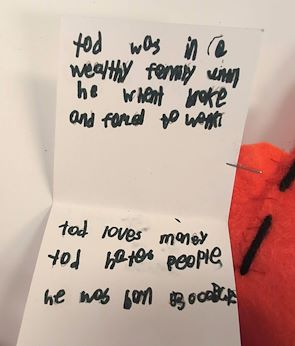 tod was in a
wealthy family when
he whent broke
and forced to work
tod loves money
tod hates people
he was born